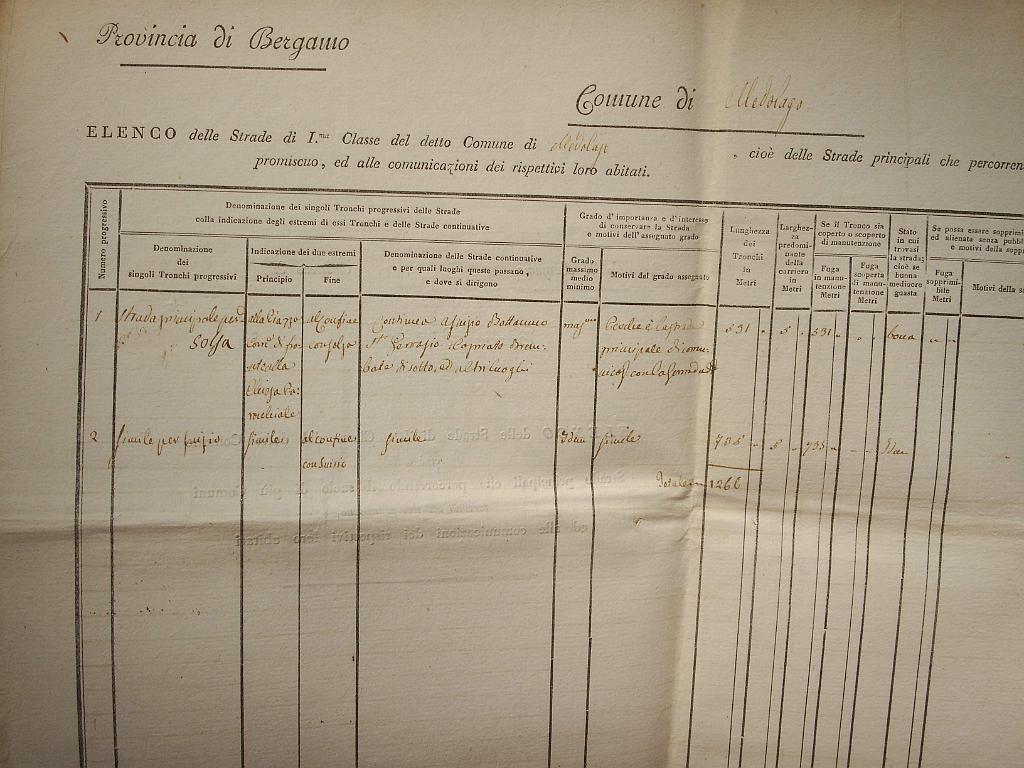 Provincia di Bergamo
Comune di Medolago
ELENCO delle Strade di I.ma Classe del detto Comune di Medolago , cioè delle Strade principali che percorren
promiscuo, ed alle comunicazioni dei rispettivi loro abitati.
Numero progressivo
Denominazione dei singoli Tronchi progressivi delle Strade
colla indicazione degli estremi di essi Tronchi e delle Strade continuative
Denominazione
dei
singoli Tronchi progressivi
Indicazione dei due estremi
Principio
Fine
Denominazione delle Strade continuative
e per quali luoghi queste passano,
e dove si dirigono
Grado d'importanza e d'interesse
di conservare la Strada
e motivi dell'assegnato grado
Grado
massimo
medio
minimo
Motivi del grado assegnato
Lunghezza
dei
Tronchi
in
Metri
Larghez-
za
predomi-
nante
della
carriera
in
Metri
Se il Tronco sia
coperto o scoperto
di manutenzione
Fuga
in manu-
tenzione
Metri
Fuga
scoperta
di manu-
tenzione
Metri
Stato
in cui
trovasi
la strada;
cioè se
buona
mediocre
guasta
Se possa essere sopprimi
ed alienata senza pubbl
e motivi della soppr
Fuga
sopprimi-
bile
Metri
Motivi della s
1 Strada principale per
Solza
alla Piazza
Com.e di fro
nte alla
Chiesa Pa-
rochiale
al confine
con Solza
continua a Suisio Bottanuco
S.t Gervasio Capriate Brem-
bate di sotto, ed altri luoghi
mas.mo
è la strada
principale di comu-
531 5 531 buona
2 Simile per Suisio
Simile
al confine
con Suisio
Simile
Idem
Simile
735 5 735 Idem
Totale 1266